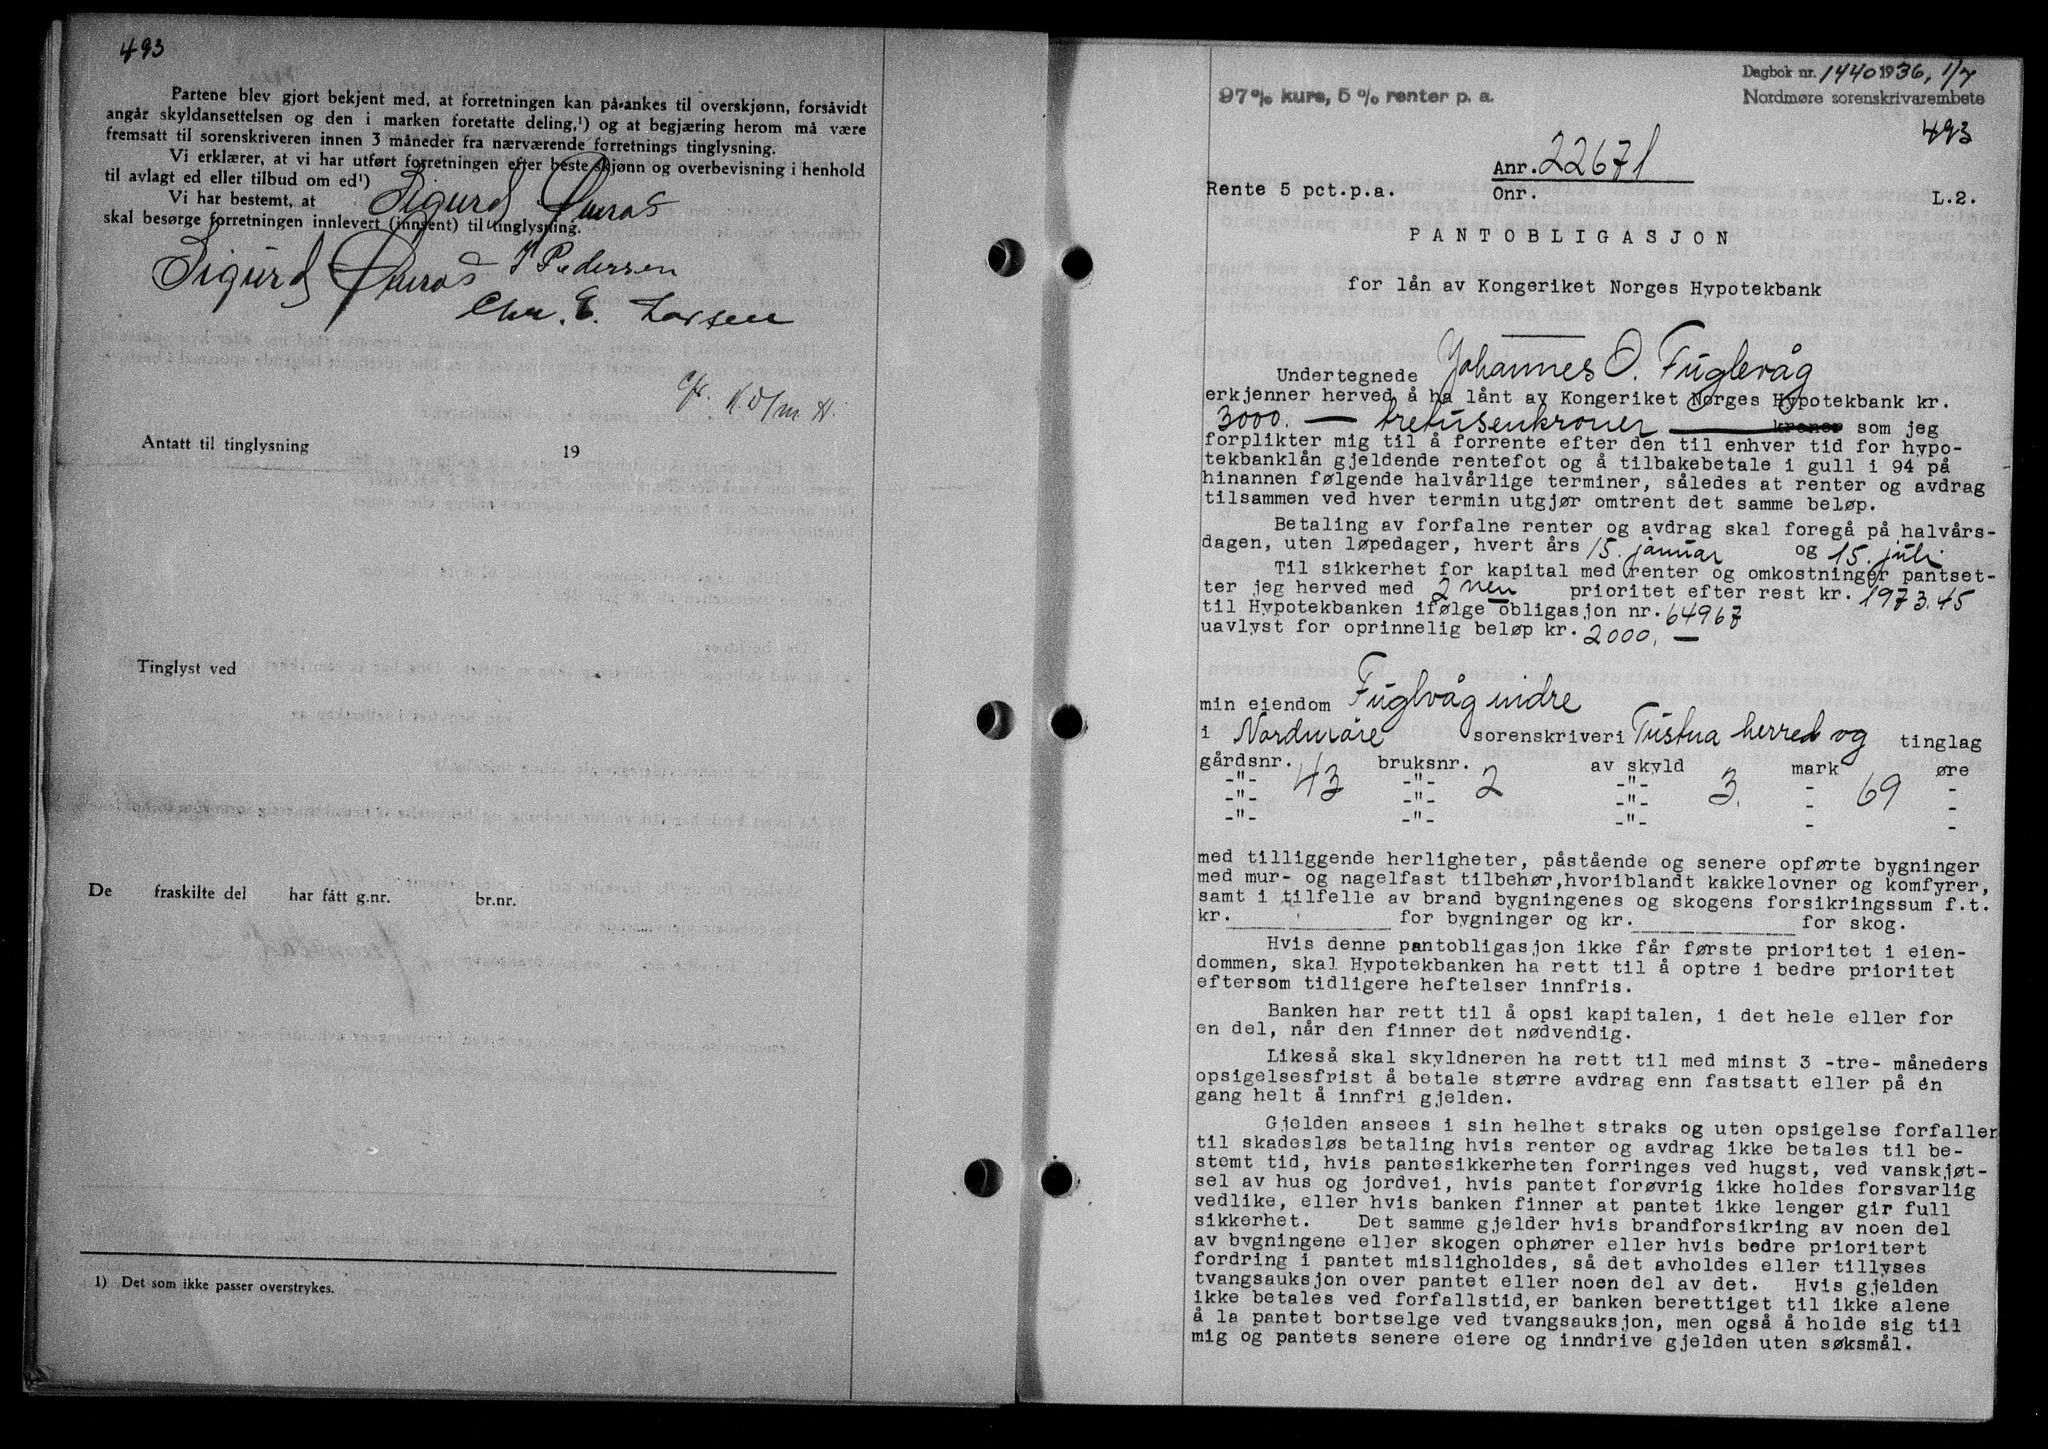 493
Partene blev gjort bekjent med, at forretningen kan på-ankes til overskjønn, forsåvidt
angår skyldansettelsen og den i marken foretatte deling,¹) og at begjæring herom må være
fremsatt til sorenskriveren innen 3 måneder fra nærværende forretnings tinglysning.
Vi erklærer, at vi har utført forretningen efter beste skjønn og overbevisning i henhold
til avlagt ed eller tilbud om ed¹)
Vi har bestemt, at Sigurd
skal besørge forretningen innlevert (innsent) til tinglysning.
Sigurd
Pedersen
Chr. E. Larsen
Antatt til tinglysning 19
Tinglyst ved
De fraskilte del har fått g.nr. br.nr.
1) Det som ikke passer overstrykes.
Dagbok nr. 1440 1936, 1/7
97 % kurs, 5 % renter p. a.
Nordmøre sorenskrivarembete
493
Anr. 22671
Rente 5 pct.p.a. Onr. L.2.
PANTOBLIGASJON
for lån av Kongeriket Norges Hypotekbank
Undertegnede Johannes O. Fuglevåg
erkjenner herved å ha lånt av Kongeriket Norges Hypotekbank kr.
3000.— tretusenkroner — kroner som jeg
forplikter mig til å forrente efter den til enhver tid for hypo-
tekbanklån gjeldende rentefot og å tilbakebetale i gull i 94 på
hinannen følgende halvårlige terminer, således at renter og avdrag
tilsammen ved hver termin utgjør omtrent det samme beløp.
Betaling av forfalne renter og avdrag skal foregå på halvårs-
dagen, uten løpedager, hvert års 15. januar og 15. juli
Til sikkerhet for kapital med renter og omkostninger pantset-
ter jeg herved med 2nen prioritet efter rest kr. 1973.45
til Hypotekbanken ifølge obligasjon nr. 64967
uavlyst for oprinnelig beløp kr. 2000.—
min eiendom Fuglvåg indre
i Nordmøre sorenskriveri Tustna herred og tinglag
gårdsnr. 43 bruksnr. 2 av skyld 3. mark 69 øre
-"- -"- -"- - -
-"- -"- -"- - -
-"- -"- -"- - -
med tilliggende herligheter, påstående og senere opførte bygninger
med mur- og nagelfast tilbehør, hvoriblandt kakkelovner og komfyrer,
samt i tilfelle av brand bygningenes og skogens forsikringssum f.t.
kr. for bygninger og kr. for skog.
Hvis denne pantobligasjon ikke får første prioritet i eien-
dommen, skal Hypotekbanken ha rett til å optre i bedre prioritet
eftersom tidligere heftelser innfris.
Banken har rett til å opsi kapitalen, i det hele eller for
en del, når den finner det nødvendig.
Likeså skal skyldneren ha rett til med minst 3 -tre- måneders
opsigelsesfrist å betale større avdrag enn fastsatt eller på én
gang helt å innfri gjelden.
Gjelden ansees i sin helhet straks og uten opsigelse forfaller
til skadesløs betaling hvis renter og avdrag ikke betales til be-
stemt tid, hvis pantesikkerheten forringes ved hugst, ved vanskjøt-
sel av hus og jordvei, hvis pantet forøvrig ikke holdes forsvarlig
vedlike, eller hvis banken finner at pantet ikke lenger gir full
sikkerhet. Det samme gjelder hvis brandforsikring av noen del
av bygningene eller skogen ophører eller hvis bedre prioritert
fordring i pantet misligholdes, så det avholdes eller tillyses
tvangsauksjon over pantet eller noen del av det. Hvis gjelden
ikke betales ved forfallstid, er banken berettiget til ikke alene
å la pantet bortselge ved tvangsauksjon, men også å holde sig til
mig og pantets senere eiere og inndrive gjelden uten søksmål.